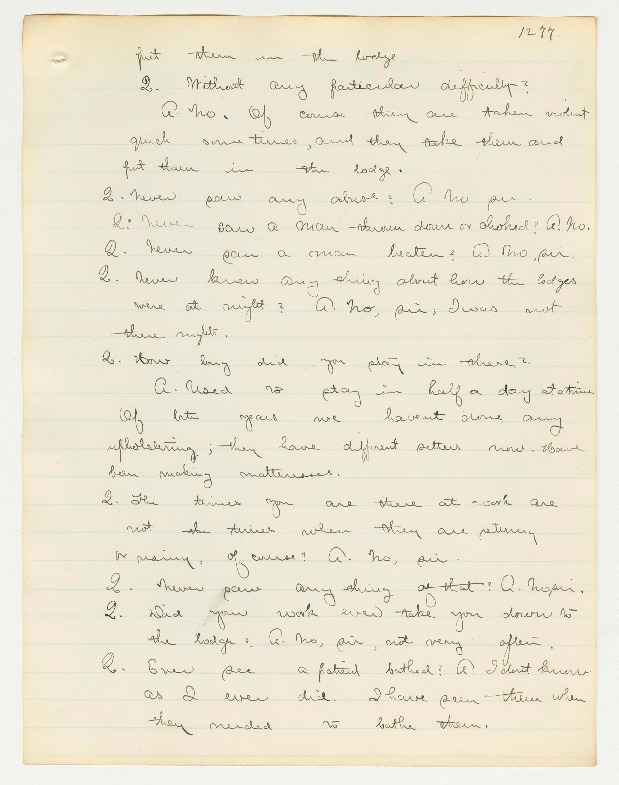 1277.
put them in the lodge
Q. Without any particular difficulty?
A. No. Of course they are taken violent
quick sometimes, and they take them and
put them in the lodge.
Q. Never saw any abuse? A. No sir.
Q. Never saw a man thrown down or choked? A. No.
Q. Never saw a man beaten? A. No, sir.
Q. Never knew anything about how the lodges
were at night? A. No, sir, I was not
there nights.
Q. How long did you stay in there?
A. Used to stay in half a day at a time
Of late years we havent done any
upholstering; they have different settees now. Have
been making mattresses.
Q. The times you are there at work are
not the times when they are retiring
or rising, of course? A. No, sir.
Q. Never saw anything of that? A. No sir.
Q. Did your work ever take you down to
the lodge? A. No, sir, not very often.
Q. Ever see a patient bathed? A. I dont know
as I ever did. I have seen them when
they needed to bathe them.